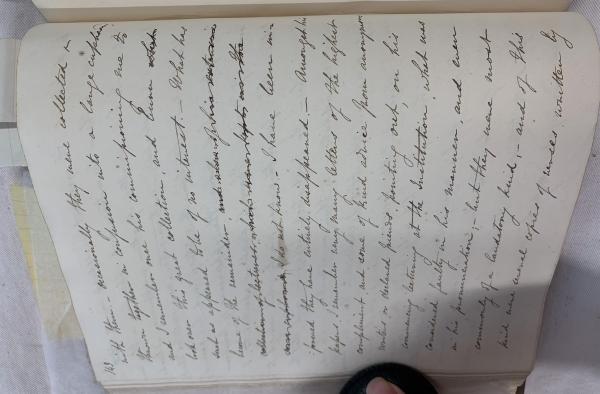 168
with them — occasionally they were collected &
thrown together in confusion into a large cupboard
and I remember once his commissioning me to
look over this great collection, and burn
such as appeared to be of no interest. — What has
become of the remainder
know. — I have been in
formed they have entirely disappeared. — Amongst his
papers I remember very many letters of the highest
compliment and some of kind advice from anonymous
writers or declared friends, pointing out, on his
commencing lecturing at the Institution, what was
considered faulty in his manner and even
in his pronunciation; but they were most
commonly of a laudatory kind; — and of this
kind were several copies of verses, written by